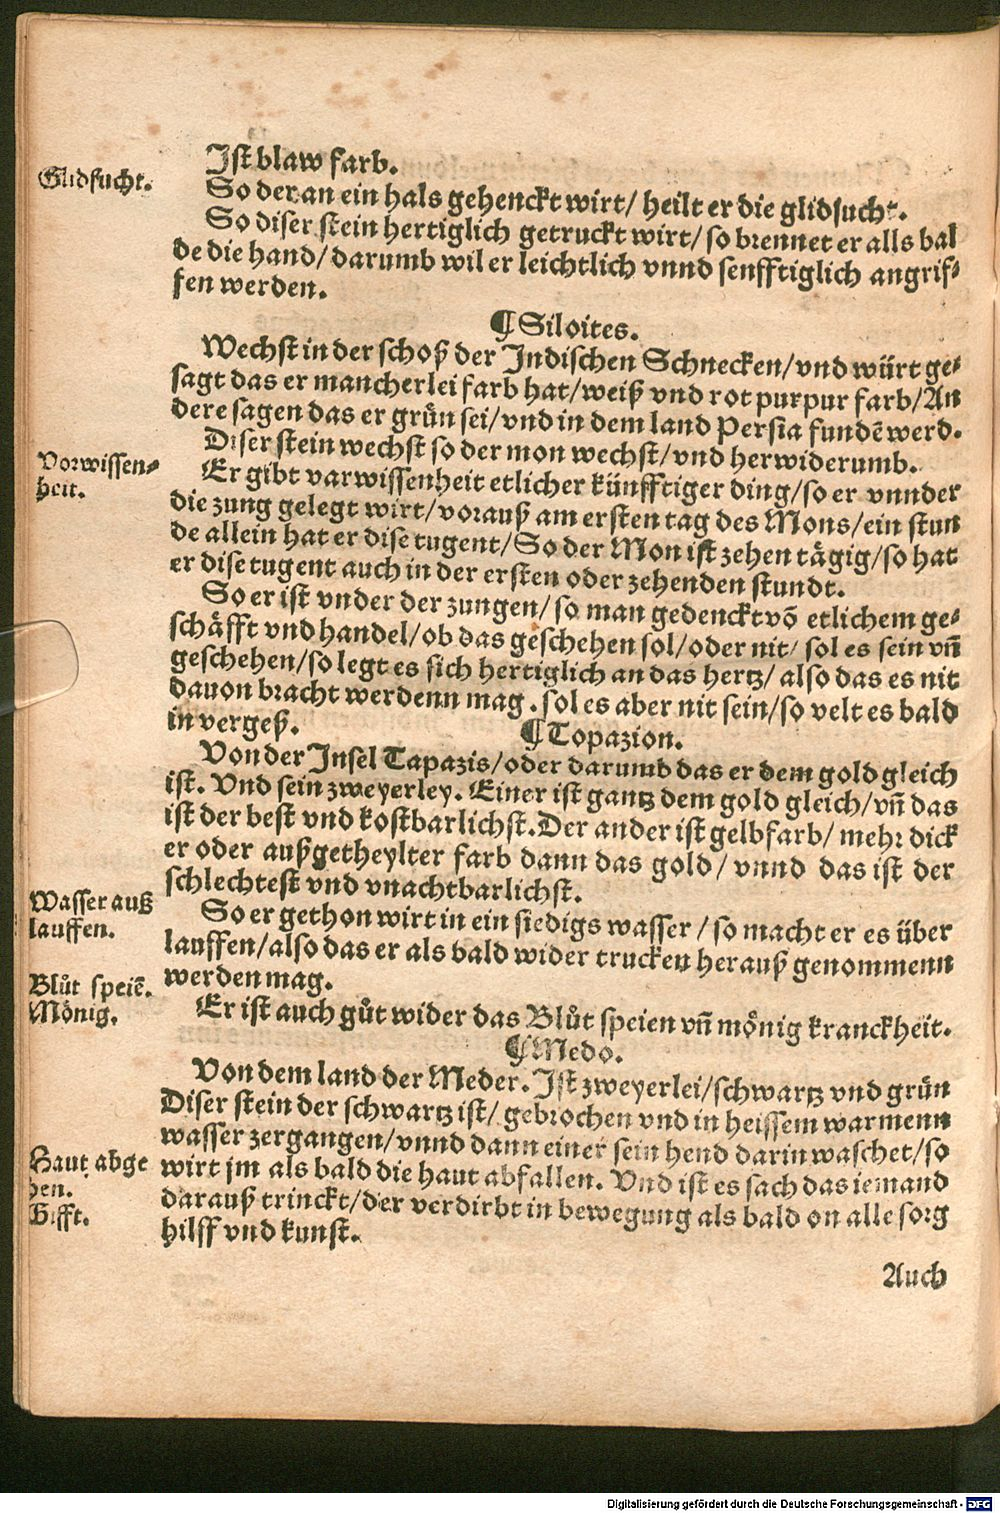 Ist blaw farb.
Glidsucht.
So der an ein hals gehenckt wirt/ heilt er die glidsucht.
So diser stein hertiglich getruckt wirt/ so brennet er alls bal
de die hand/ darumb wil er leichtlich vnnd senfftiglich angrif⸗
fen werden.
¶ Siloites.
Wechst in der schoß der Indischen Schnecken/ vnd würt ge⸗
sagt das er mancherlei farb hat/ weiß vnd rot purpur farb/ An
dere sagen das er grün sei/ vnd in dem land Persia fundē werd.
Diser stein wechst so der mon wechst/ vnd herwiderumb.
Vorwissen⸗
heit.
Er gibt varwissenheit etlicher künfftiger ding/ so er vnnder
die zung gelegt wirt/ vorauß am ersten tag des Mons/ ein stun
de allein hat er dise tugent/ So der Mon ist zehen tägig/ so hat
er dise tugent auch in der ersten oder zehenden stundt.
So er ist vnder der zungen/ so man gedenckt vō etlichem ge⸗
schäfft vnd handel/ ob das geschehen sol/ oder nit/ sol es sein vñ
geschehen/ so legt es sich hertiglich an das hertz/ also das es nit
dauon bracht werdenn mag. sol es aber nit sein/ so velt es bald
in vergeß.
¶ Topazion.
Von der Insel Tapazis/ oder darumb das er dem gold gleich
ist. Vnd sein zweyerley. Einer ist gantz dem gold gleich/ vñ das
ist der best vnd kostbarlichst. Der ander ist gelbfarb/ mehr dick
er oder außgetheylter farb dann das gold/ vnnd das ist der
schlechtest vnd vnachtbarlichst.
Wasser auß
lauffen.
So er gethon wirt in ein siedigs wasser/ so macht er es über
lauffen/ also das er als bald wider trucken herauß genommenn
werden mag.
Blůt speiē.
Mönig.
Er ist auch gůt wider das Blůt speien vñ mönig kranckheit.
¶ Medo.
Von dem land der Meder. Ist zweyerlei/ schwartz vnd grün
Diser stein der schwartz ist/ gebrochen vnd in heissem warmenn
wasser zergangen/ vnnd dann einer sein hend darin waschet/ so
Haut abge
hen.
Gifft.
wirt jm als bald die haut abfallen. Vnd ist es sach das iemand
darauß trinckt/ der verdirbt in bewegung als bald on alle sorg
hilff vnd kunst.
Auch
Digitalisierung gefördert durch die Deutsche Forschungsgemeinschaft - DFG